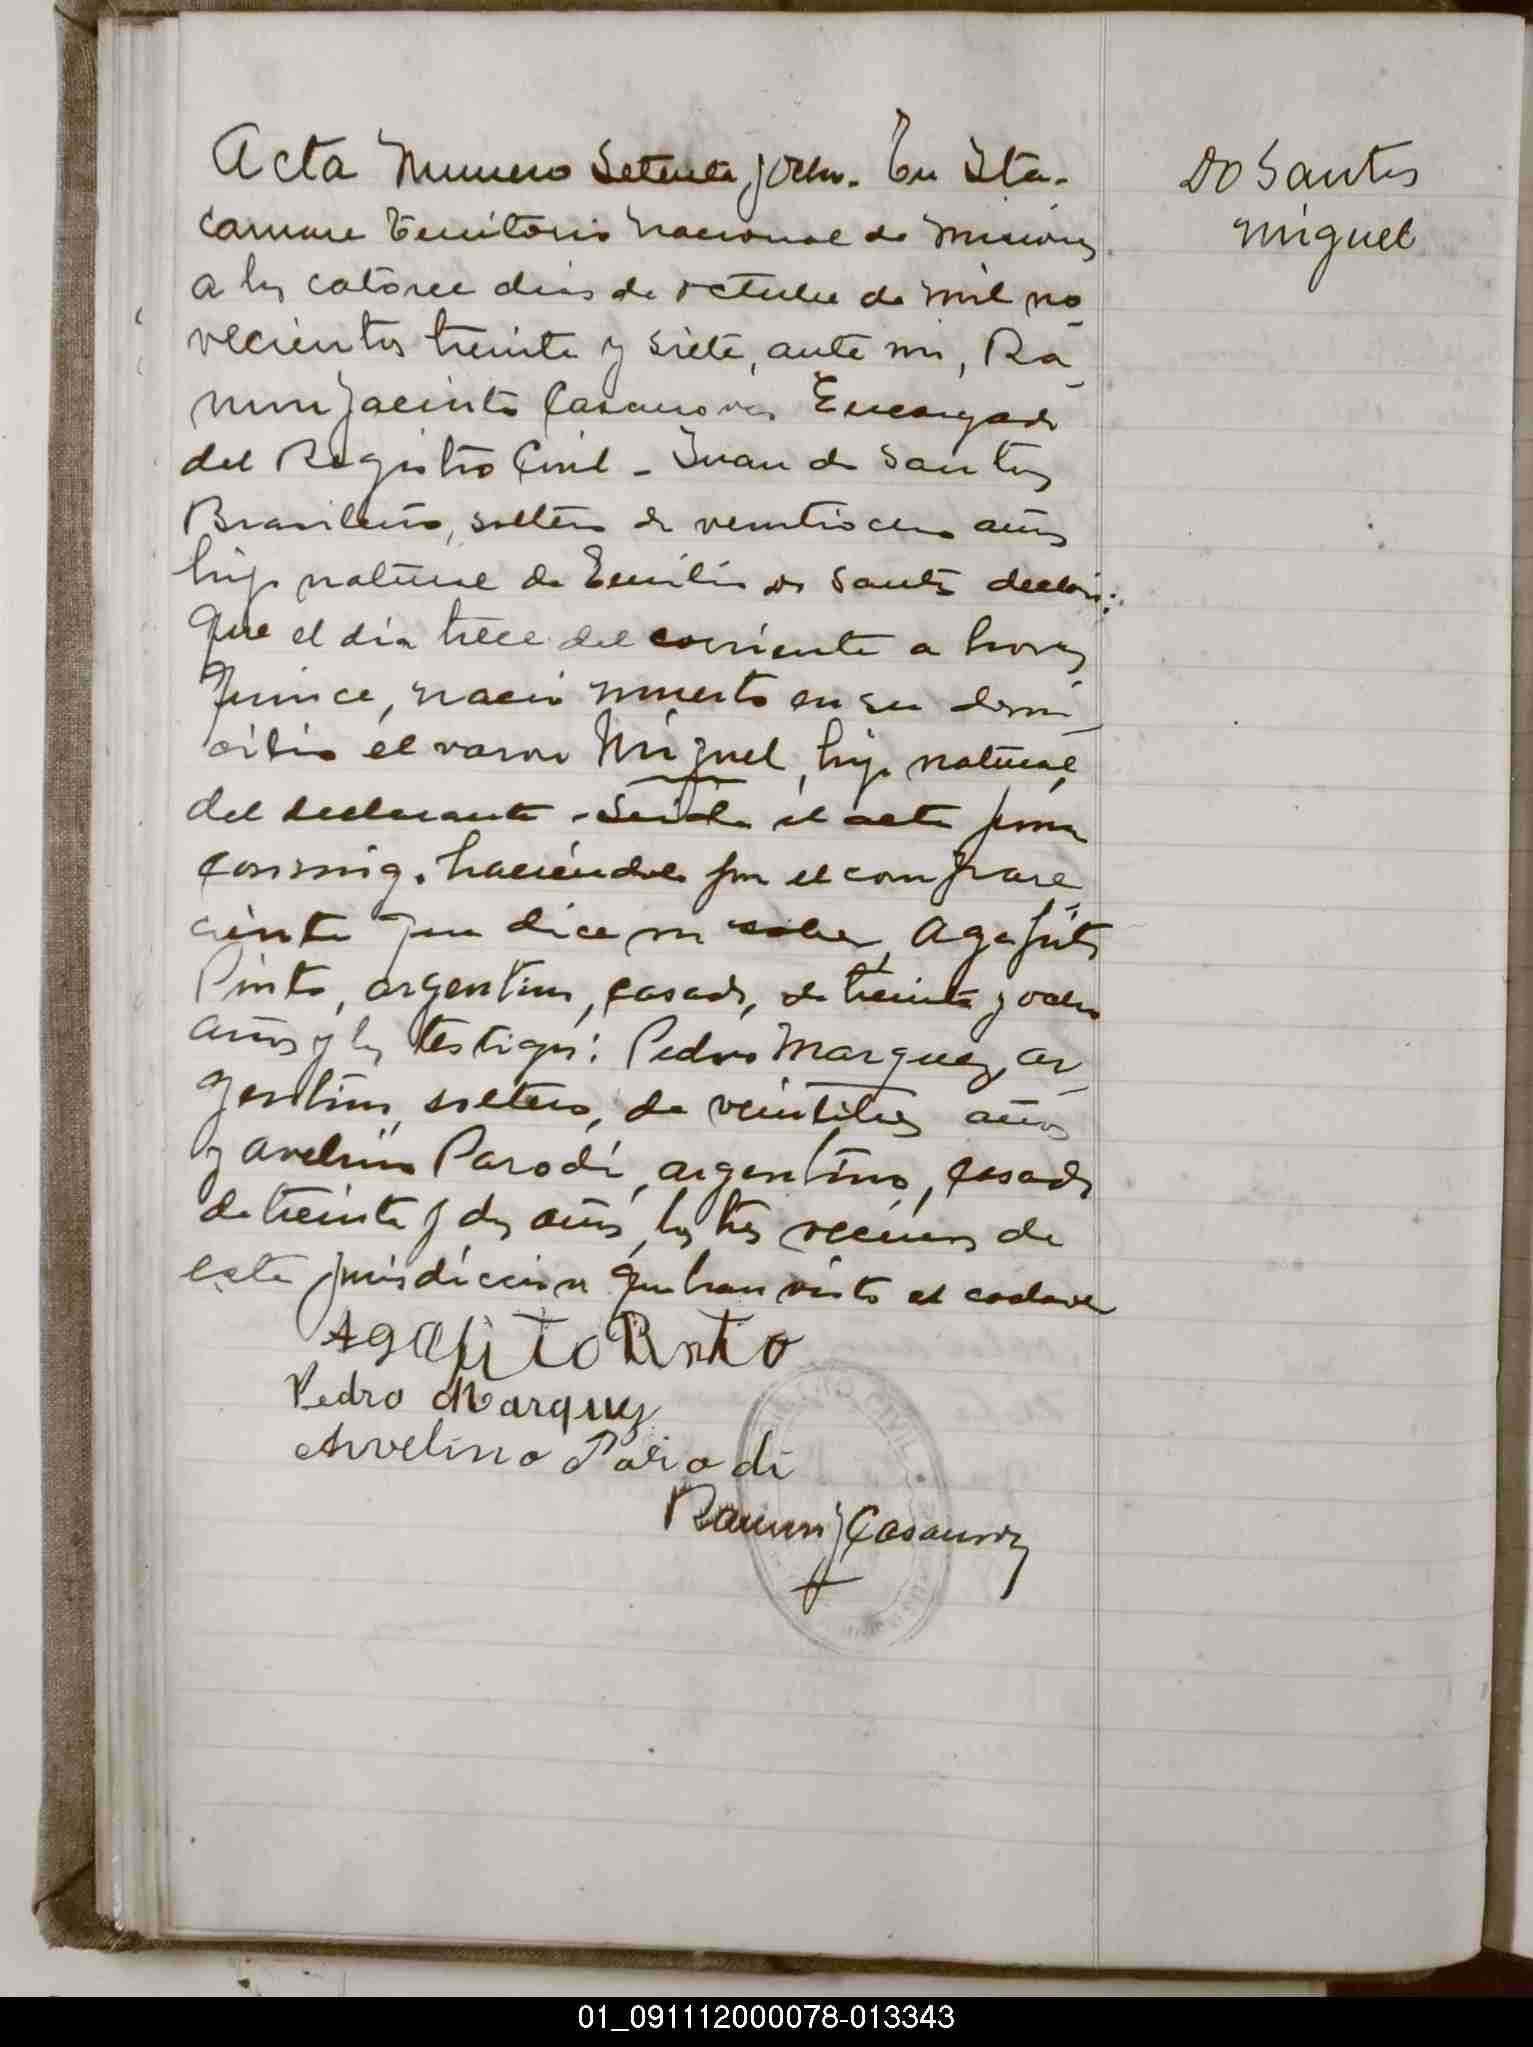 Acta Numero Setenta y ocho. En Ita-
caruare Territorio Nacional de Misiones
a los catorce dias de octubre de mil no-
vecientos treinta y siete, ante mi, Ra-
mon Jacinto Casanova Encargado
del Registro Civil - Juan do Santos
Brasileño, soltero de veintiocho años
hijo natural de Emilia do Santos declaró:
Que el día trece del corriente a horas
quince, nació muerto en su domi-
cilio el varon Miguel, hijo natural
del declarante. Leida el acta firma
conmigo. haciéndolo por el compare-
ciente que dice no saber, Agapito
Pinto, argentino, casado, de treinta y ocho
años y los testigos: Pedro Marquez, ar-
gentino, soltero, de veintitres años
y Avelino Parodi, argentino, casado
de treinta y dos años, los tres vecinos de
esta jurisdiccion que han visto el cadaver
Agapito Pinto
Pedro Marquez
Avelino Parodi
Ramon J Casanova
Do Santos
Miguel
REGISTRO CIVIL
01_091112000078-013343